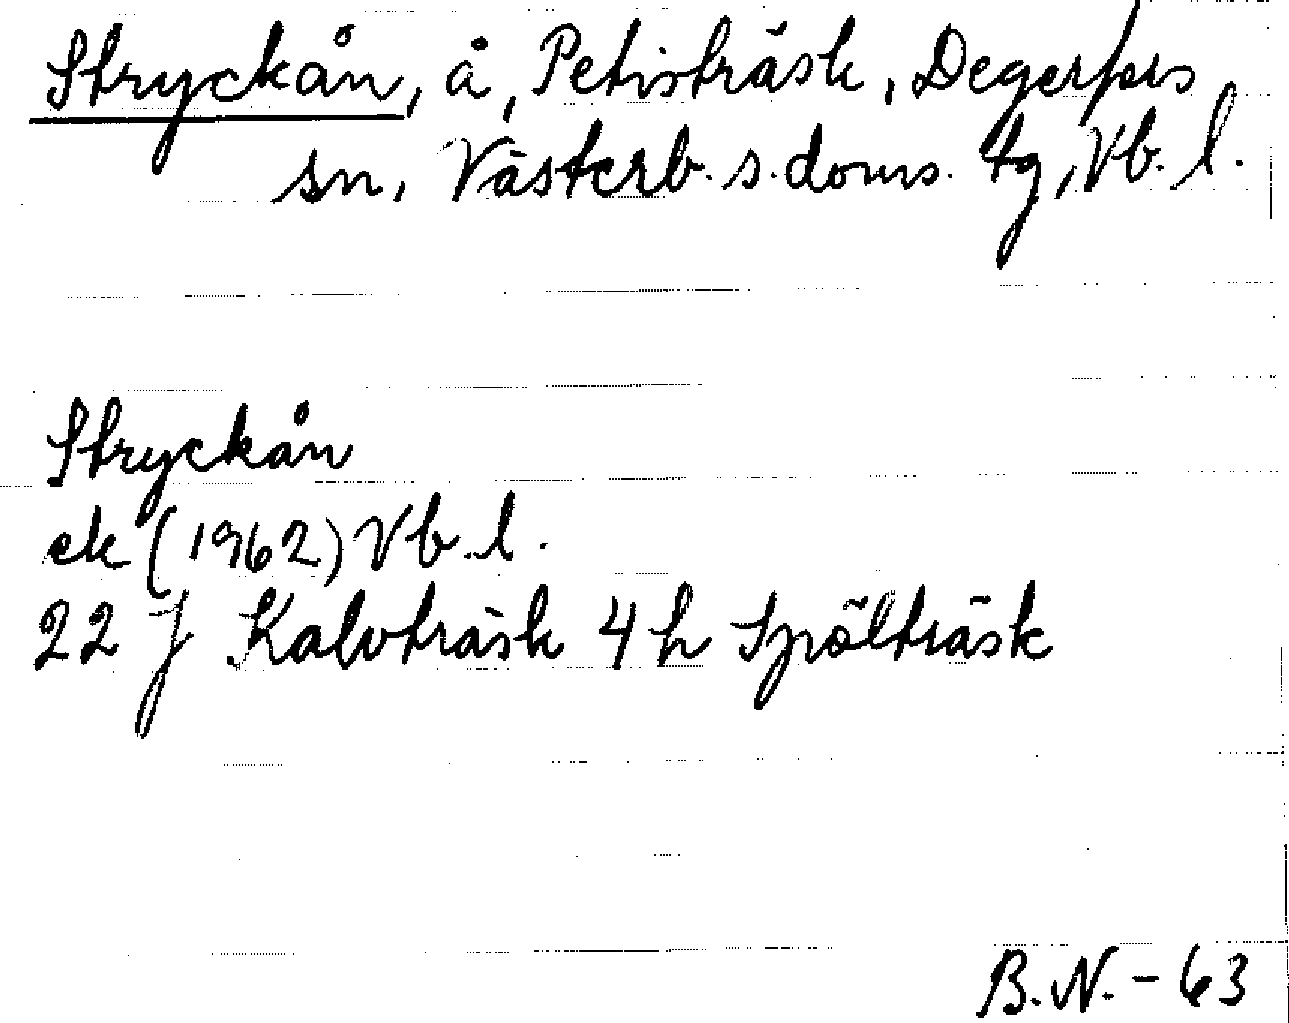 Stryckån, å, Petisträsk, Degerfors
sn, Västerb. s. doms. tg, Vb. l.
Stryckån
ek (1962) Vb. l.
22 J Kalvträsk 4 h Spölträsk
B.N. - 63